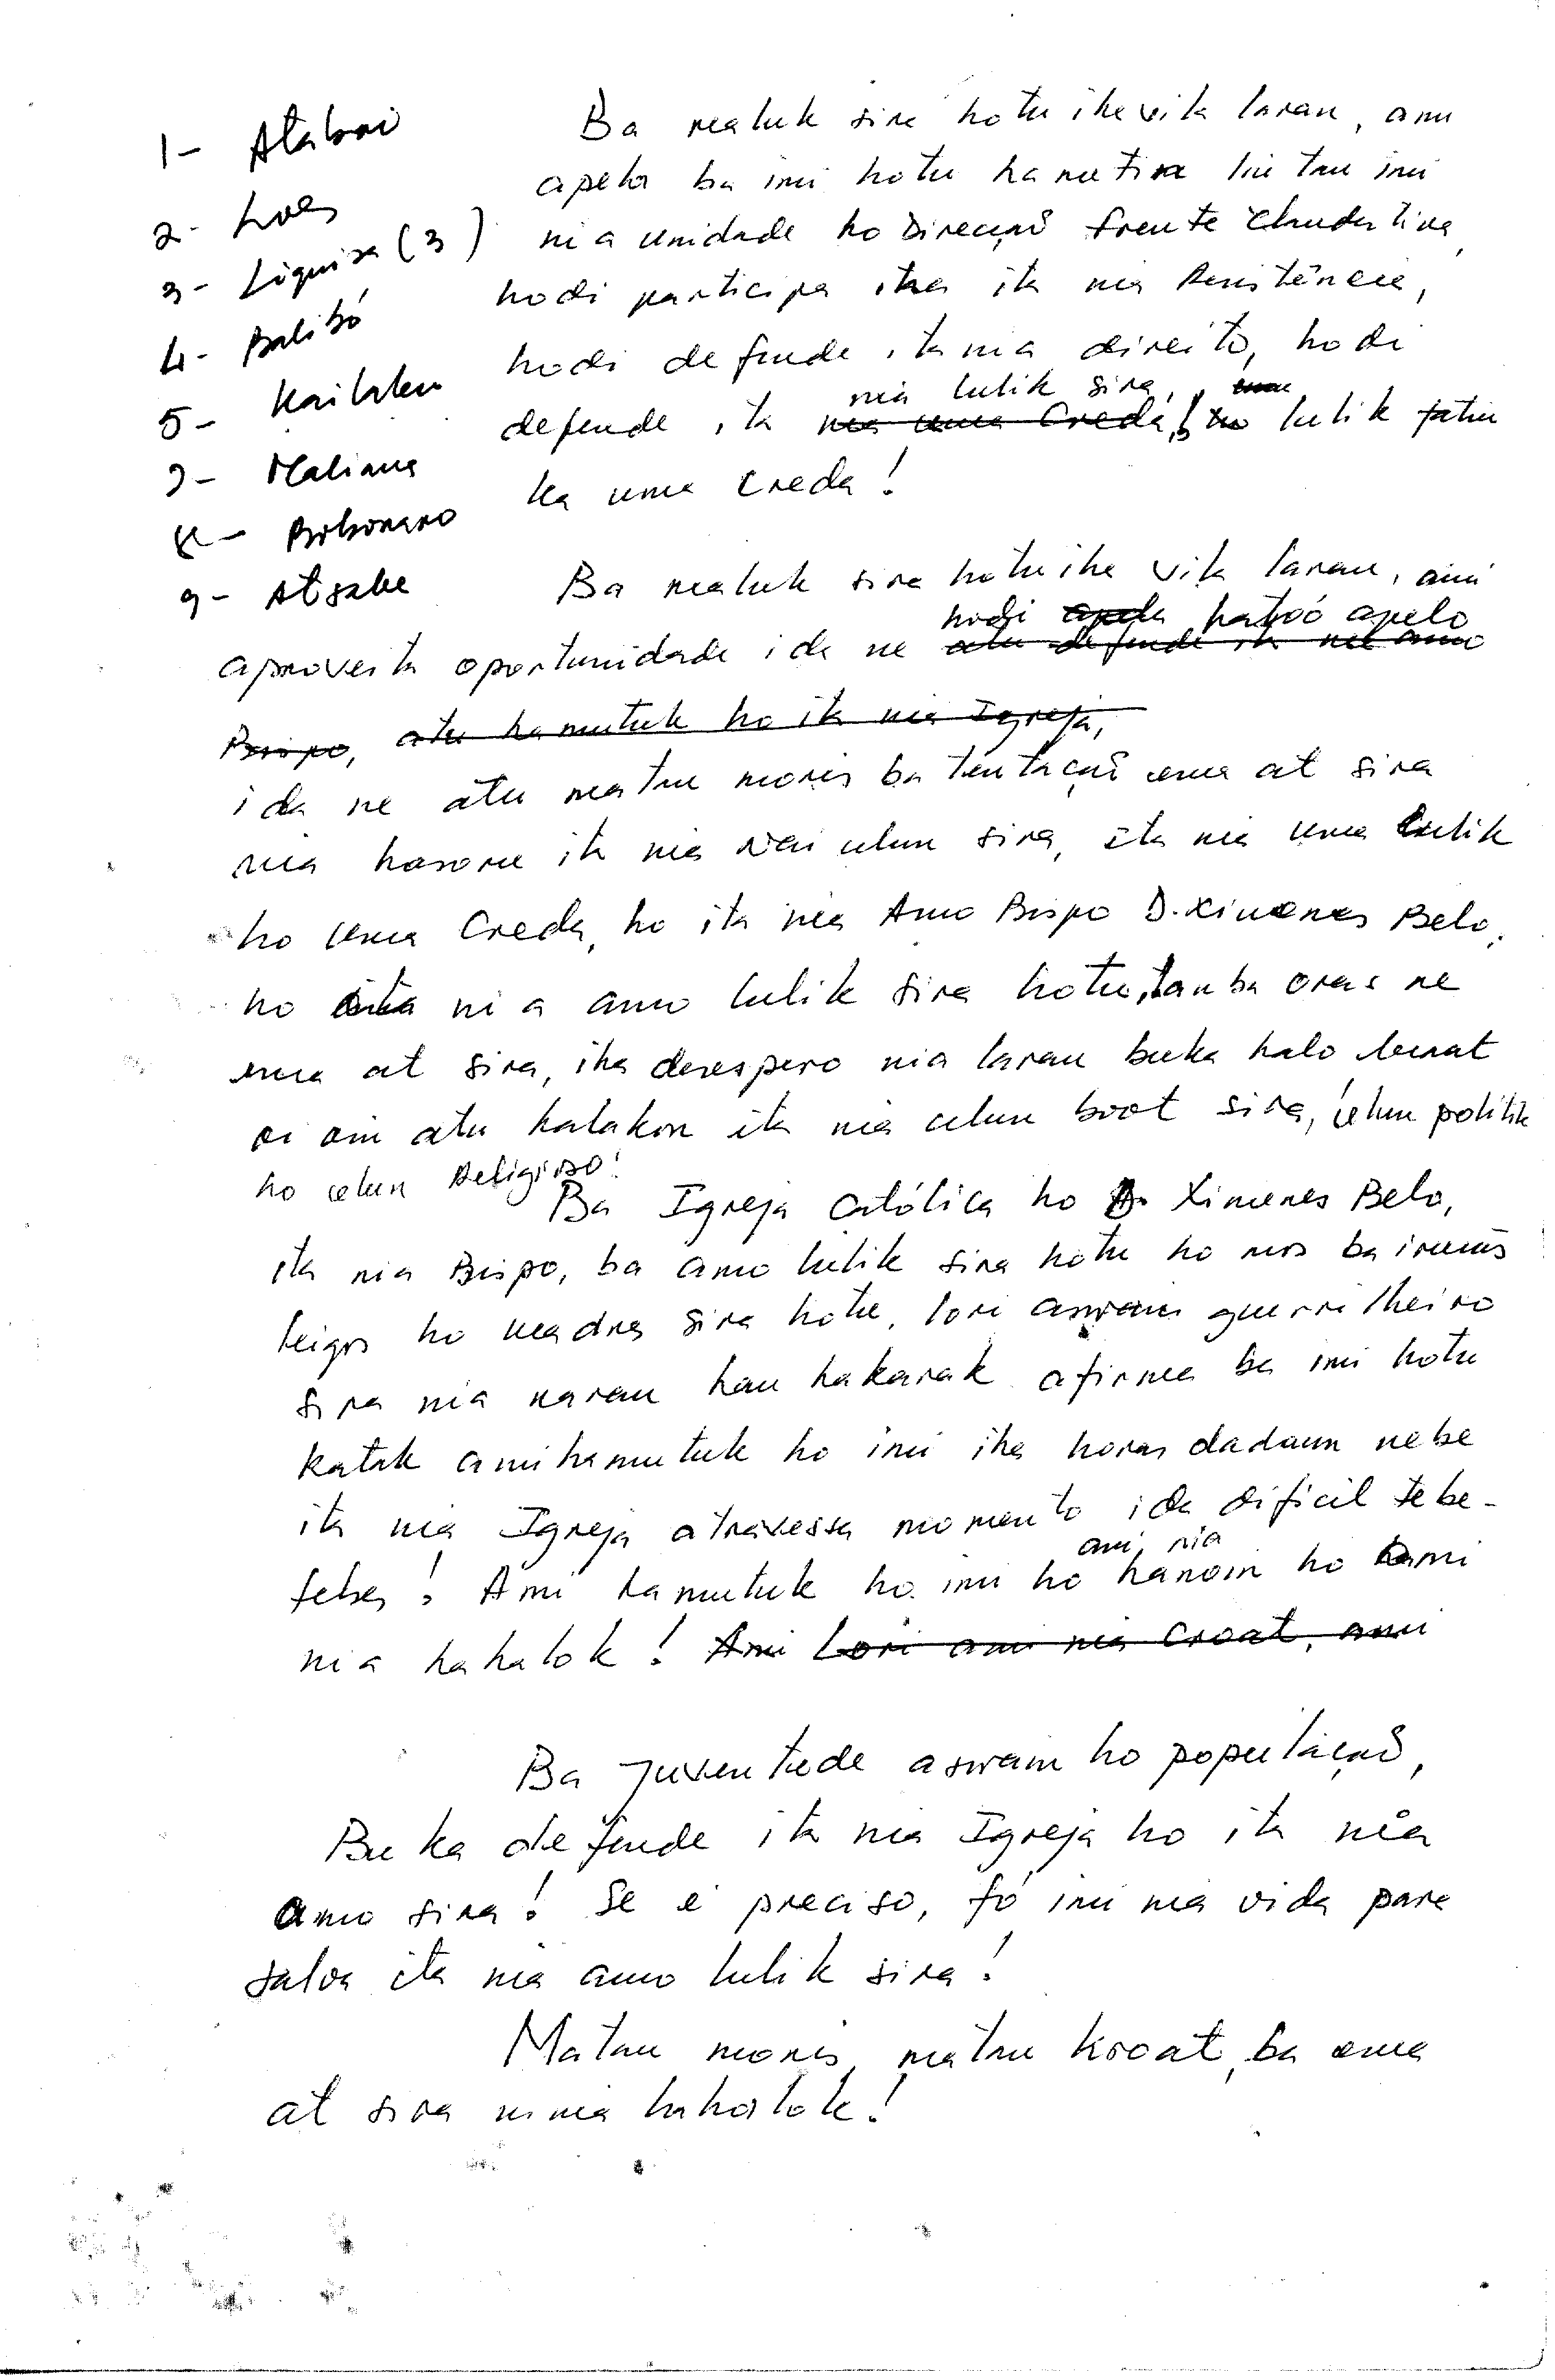 1- Atabai
2- Loes
3- Liquisa (3)
4- Balibó
5- Kailaku
7- Maliana
8- Bobonaro
9- Atsabe
Ba maluk sira hotu iha vila laran, ami
apelo ba imi hotu hametin liu tan imi
nia unidade ho Direcção frente Clandestina
hodi participa iha ita nia Resistência,
hodi defende ita nia direito, hodi
nia lulik sira,
defende ita nia uma Creda, ho lulik fatin
ka uma Creda!
Ba maluk sira hotu iha vila laran, ami
hodi apelo hatoó apelo
aproveita oportunidade ida ne atu defende ita nia amo
Bispo, atu hamutuk ho ita nia Igreja,
ida ne atu matan moris ba tentação ema at sira
nia hasoru ita nia Nai ulun sira, ita nia Uma Lulik
ho Uma Creda, ho ita nia Amo Bispo D. Ximenes Belo,
ho ita nia amo lulik sira hotu, tanba oras ne
ema at sira, iha desespero nia laran buka halo buat
oi oin atu halakon ita nia ulun boot sira, ulun politik
ho ulun Religioso!
Ba Igreja Católica ho D. Ximenes Belo,
ita nia Bispo, ba amo lulik sira hotu ho mos ba irmãs
leigos ho madres sira hotu, lori aswain guerrilheiro
sira nia naran hau hakarak afirma ba imi hotu
katak ami hamutuk ho imi iha horas dadaun nebe
ita nia Igreja atravessa momento ida dificil tebe-
ami nia
tebes! Ami hamutuk ho imi ho hanoin ho ami
nia hahalok! Ami Lori ami nia Croat, ami
Ba Juventude aswain ho população,
Buka defende ita nia Igreja ho ita nia
amo sira! Se é preciso, fó imi nia vida para
salva ita nia amo lulik sira!
Matan moris, matan kroat, ba ema
at sira nia hahalok!